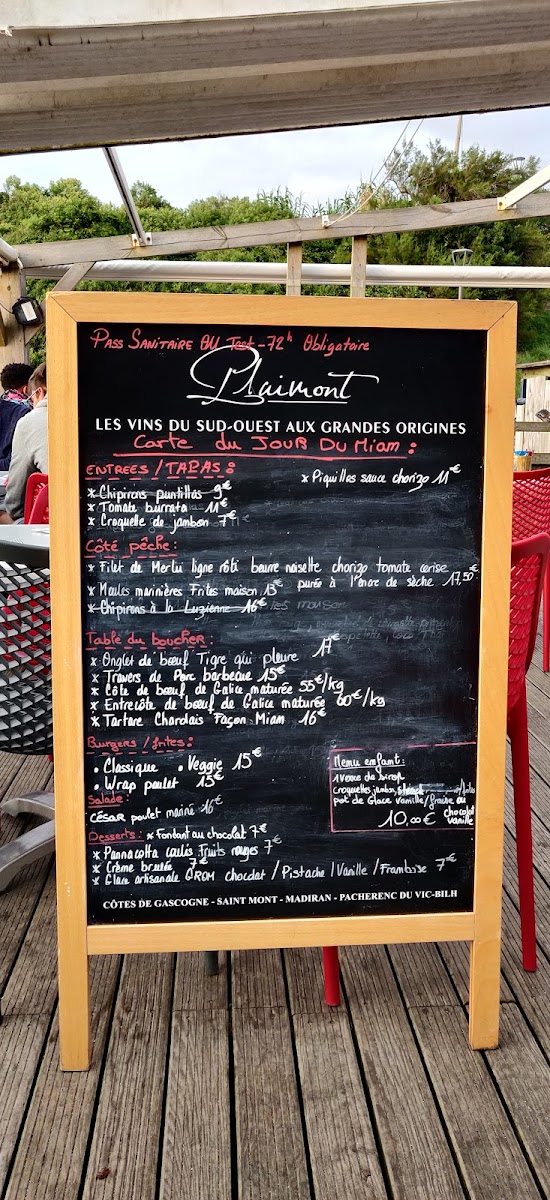 PASS SANITAIRE OU Test -72h Obligatoire
Plaimont
LES VINS DU SUD-OUEST AUX GRANDES ORIGINES
Carte du JOUR DU Miam :
ENTREES / TAPAS :
* Chipirons puntillas 9€
* Piquillos sauce chorizo 11€
* Tomate burrata 11€
* Croquette de jambon 7€
Côté pêche :
* Filet de Merlu ligne rôti beurre noisette chorizo tomate cerise
purée à l'encre de sèche 17,50€
* Moules marinières Frites maison 13€
* Chipirons à la Luzienne 16€
Table du boucher :
* Onglet de bœuf Tigre qui pleure 17€
* Travers de Porc barbecue 15€
* Côte de bœuf de Galice maturée 55€/kg
* Entrecôte de bœuf de Galice maturée 60€/kg
* Tartare Charolais Façon Miam 16€
Burgers / frites :
• Classique • Veggie 15€
• Wrap poulet 15€
Salade :
CÉSAR poulet mariné 16€
Menu enfant :
1 Verre de Sirop
croquettes jambon,
pot de Glace Vanille/fraise ou
chocolat
vanille
10,00€
Desserts : * Fondant au chocolat 7€
* Pannacotta coulis Fruits rouges 7€
* Crème brulée 7€
* Glace artisanale chocolat / Pistache / Vanille / Framboise 7€
CÔTES DE GASCOGNE - SAINT MONT - MADIRAN - PACHERENC DU VIC-BILH